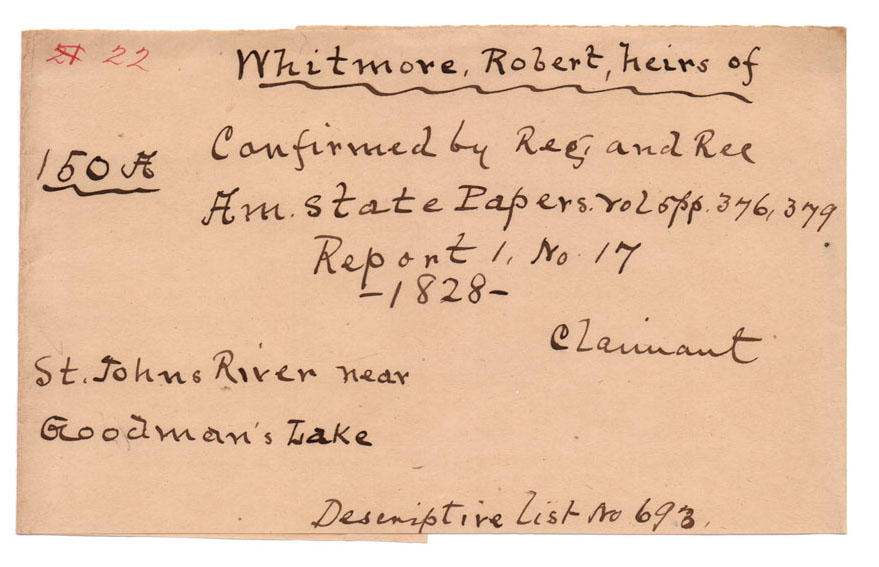 21 22
Whitmore, Robert, heirs of
150 A
Confirmed by Reg, and Rec
Am. State Papers. Vol 5 pp. 376, 379
Report 1, No. 17
-1828-
Claimant
St. Johns River near
Goodman's Lake
Descriptive list No 693.